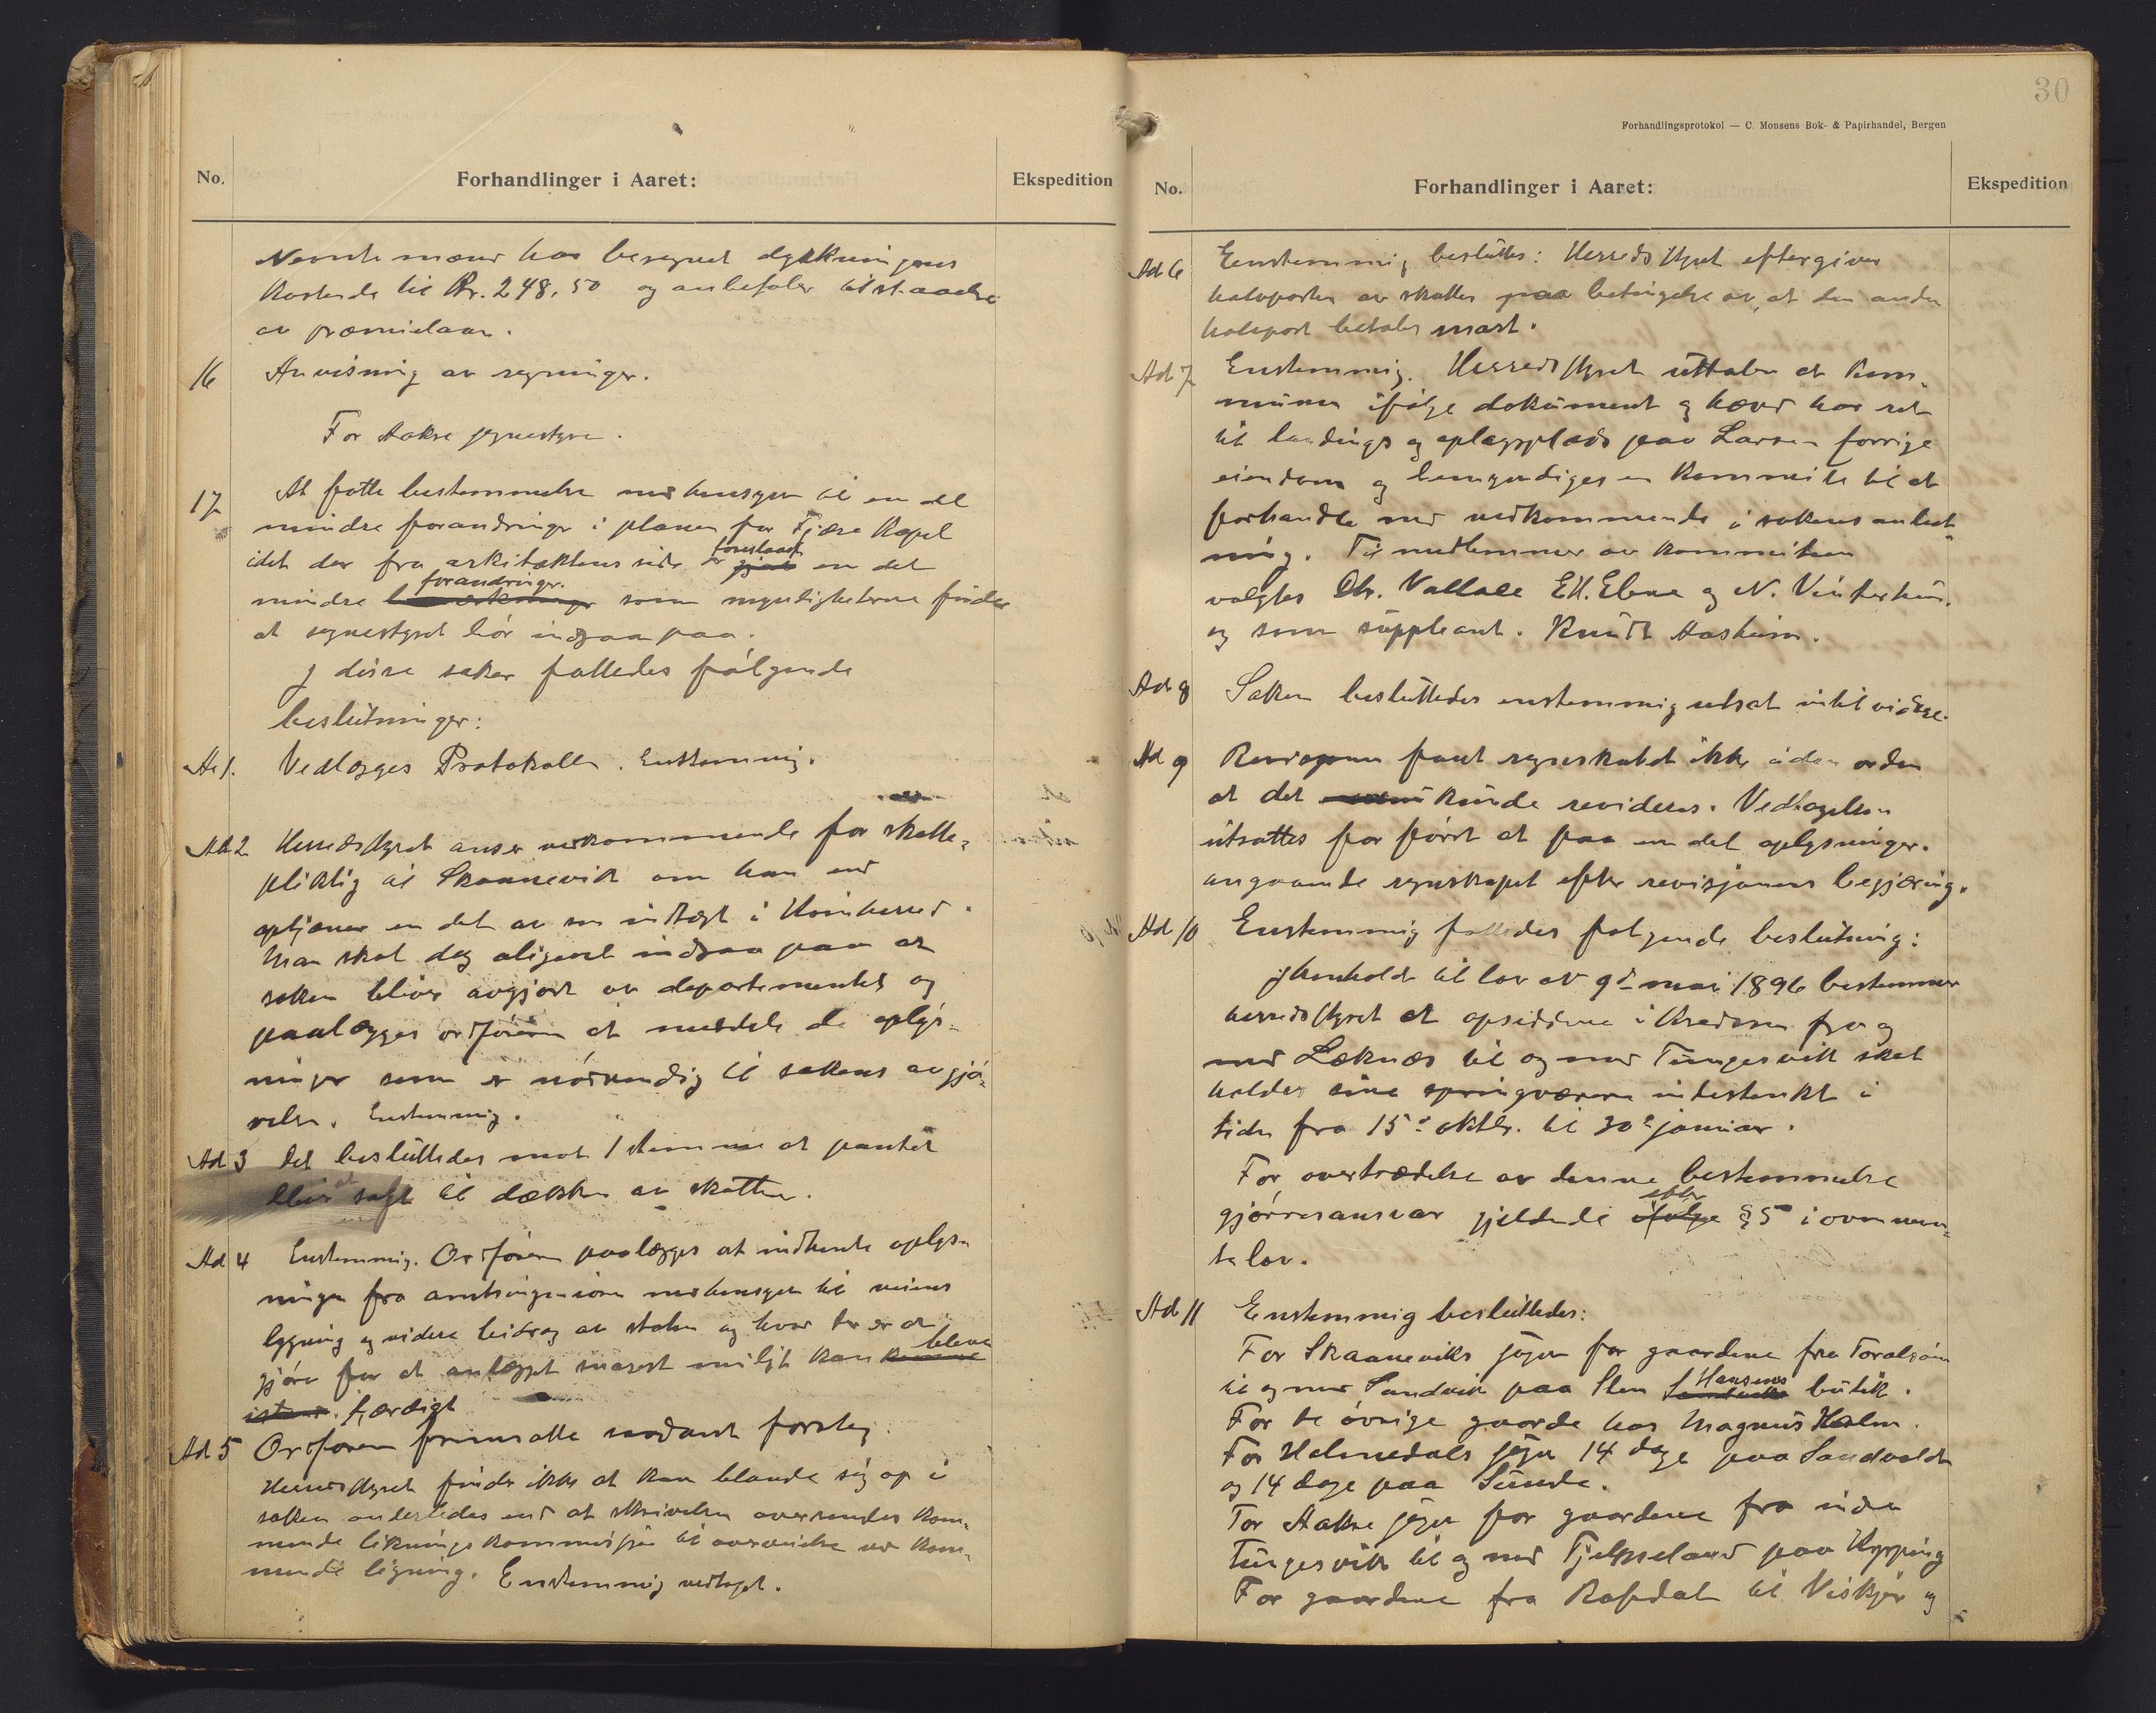 No.
Forhandlinger i Aaret:
Ekspedition
Nevnte mænd har beregnet dyrkningens
kostende til Kr. 248,50 og anbefaler tilstaaelse
av præmielaan.
16 Anvisning av regninger.
For Aakre sognestyre.
17 At fatte bestemmelse med hensyn til en del
mindre forandringer i planen for Fjære Kapel
idet der fra arkitektens side er foreslaat en del
mindre forandringer som myndigheterne finder
at sognestyret bør indgaa paa.
I disse saker fattedes følgende
beslutninger:
Ad 1. Vedlægges Protokollen. Enstemmig.
Ad 2 Herredsstyret anser vedkommende for skatte-
pliktig til Skaanevik om han end
optjener en del av sin indtægt i Kvinherred.
Man skal dog aligevel indgaa paa at
saken bliver avgjort av departementet og
paalægges ordføreren at meddele de oplys-
ninger som er nødvendig til sakens avgjø-
relse. Enstemmig.
Ad 3 Det besluttedes mot 1 stemme at pantet
blir solgt til dækken av skatten.
Ad 4 Enstemmig. Ordføreren paalægges at indhente oplys-
ninger fra amtsingeniøren med hensyn til veiens
bygning og videre bidrag av staten og hvad der er at
gjøre for at anlægget snarest muligt kan bleve
færdigt
Ad 5 Ordføreren fremsatte saadant forslag:
Herredsstyret finder ikke at kan blande sig op i
saken anderledes end at skrivelsen oversendes kom-
mende likningskommissjon til overveielse ved kom-
mende ligning. Enstemmig vedtaget.
30
Forhandlingsprotokol — C. Monsens Bok- & Papirhandel, Bergen
No.
Forhandlinger i Aaret:
Ekspedition
Ad 6 Eenstemmig besluttes: Herredsstyret eftergiver
halvparten av skatten paa betingelse av, at den anden
halvpart betales snart.
Ad 7 Enstemmig. Herredsstyret uttaler at kom-
munen ifølge dokument og hævd har ret
til landings og oplagsplads paa Larsen forrige
eiendom og bemyndiges en kommite til at
forhandle med vedkommende i sakens anled-
ning. Til medlemmer av kommiteen
valgtes Chr. Vallace E.H. Ebne og N. Vinterhus.
og som suppleant. Knudt Aasheim.
Ad 8 Saken besluttedes enstemmig utsat intil videre.
Ad 9 Revisjonen fant regnskabet ikke i den orden
at det kunde revideres. Vedtagelsen
utsattes for først at faa en del oplysninger.
angaaende regnskapet efter revisjonens begjæring.
Ad 10 Enstemmig fattedes følgende beslutning:
I henhold til lov av 9de mai 1896 bestemmer
herredsstyret at opsidderne i kredsen fra og
med Læknæs til og med Tungesvik skal
holde sine springværer indestænkt i
tiden fra 15de oktbr. til 30te januar.
For overtrædelse av denne bestemmelse
gjøres ansvar gjeldende efter § 5 i ovennevn-
te lov.
Ad 11 Enstemmig besluttedes:
For Skaaneviks sogn for gaardene fra Toralsøen
til og med Sandvik paa Sten Hansens butik.
For de øvrige gaarde hos Magnus Holm.
For Holmedals sogn 14 dage paa Sandvold
og 14 dage paa Sunde.
For Aakre sogn for gaardene fra inden
Tungesvik til og med Fjelgseland paa Kyrping
For gaardene fra Rafdal til Viskjer og